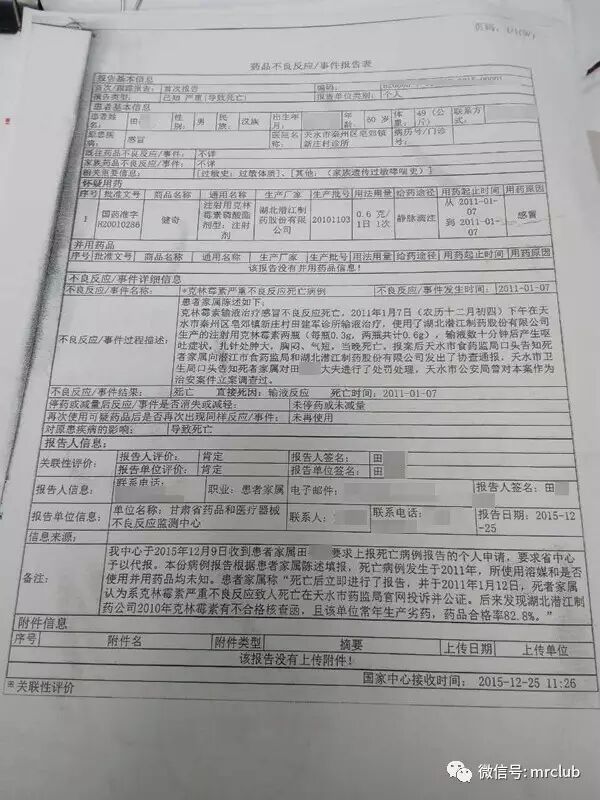 药品不良反应/事件报告表
报告基本信息
首次/跟踪报告： 首次报告 编码：
报告类型： 已知 严重(导致死亡) 报告单位类别： 个人
患者基本信息
患者姓名： 田 性别： 男 民族： 汉族 出生年月： 年龄： 60 岁 体重： 49（公斤） 联系方式：
原患疾病： 感冒 医院名称： 天水市秦州区皂郊镇新庄村诊所 病历号/门诊号：
既往药品不良反应/事件： 不详
家族药品不良反应/事件： 不详
相关重要信息： [过敏史：过敏体质]、[其他：（家族遗传过敏哮喘史）]
怀疑用药
序号 批准文号 商品名称 通用名称 生产厂家 生产批号 用法用量 给药途径 用药起止时间 用药原因
1 国药准字H20010286 健奇 注射用克林霉素磷酸酯 剂型：注射剂 湖北潜江制药股份有限公司 20101103 0.6 克/1日 1次 静脉滴注 从 2011-01-07 到 2011-01-07 感冒
并用药品
序号 批准文号 商品名称 通用名称 生产厂家 生产批号 用法用量 给药途径 用药起止时间 用药原因
该报告没有并用药品信息！
不良反应/事件详细信息
不良反应/事件名称： *克林霉素严重不良反应死亡病例 不良反应/事件发生时间：2011-01-07
不良反应/事件过程描述：
患者家属陈述如下：
克林霉素输液治疗感冒不良反应死亡，2011年1月7日（农历十二月初四）下午在天
水市秦州区皂郊镇新庄村田建军诊所输液治疗，使用了湖北潜江制药股份有限公司
生产的注射用克林霉素两瓶（每瓶0.3g，两瓶共计0.6g），输液数十分钟后产生呕
吐症状，扎针处肿大，胸闷、气短，当晚死亡。报案后天水市食药监局口头告知死
者家属向潜江市食药监局和湖北潜江制药股份有限公司发出了协查通报，天水市卫
生局门口头告知死者家属对田 大夫进行了处罚处理，天水市公安局曾对本案作为
治安案件立案调查过。
不良反应/事件结果： 死亡 直接死因：输液反应 死亡时间：2011-01-07
停药或减量后反应/事件是否消失或减轻： 未停药或未减量
再次使用可疑药品后是否再次出现同样反应/事件： 未再使用
对原患疾病的影响： 导致死亡
报告人信息：
关联性评价： 报告人评价： 肯定 报告人签名： 田
报告单位评价： 肯定 报告单位签名： 田
报告人信息： 联系电话： 职业：患者家属 电子邮件： 报告人签名：田
报告单位信息： 单位名称：甘肃省药品和医疗器械不良反应监测中心 联系人： 联系电话： 报告日期：2015-12-25
信息来源：
备注：
我中心于2015年12月9日收到患者家属田 要求上报死亡病例报告的个人申请，要求省中心
予以代报。本份病例报告根据患者家属陈述填报，死亡病例发生于2011年，所使用溶媒和是否
使用并用药品均未知。患者家属称“死亡后立即进行了报告，并于2011年1月12日，死者家属
认为系克林霉素严重不良反应致人死亡在天水市药监局官网投诉并公证。后来发现湖北潜江制
药公司2010年克林霉素有不合格核查函，且该单位常年生产劣药，药品合格率82.8%。”
附件信息
序号 附件名 附件类型 摘要 上传日期 上传单位
该报告没有上传附件！
国家中心接收时间： 2015-12-25 11:26
*关联性评价
微信号: mrclub